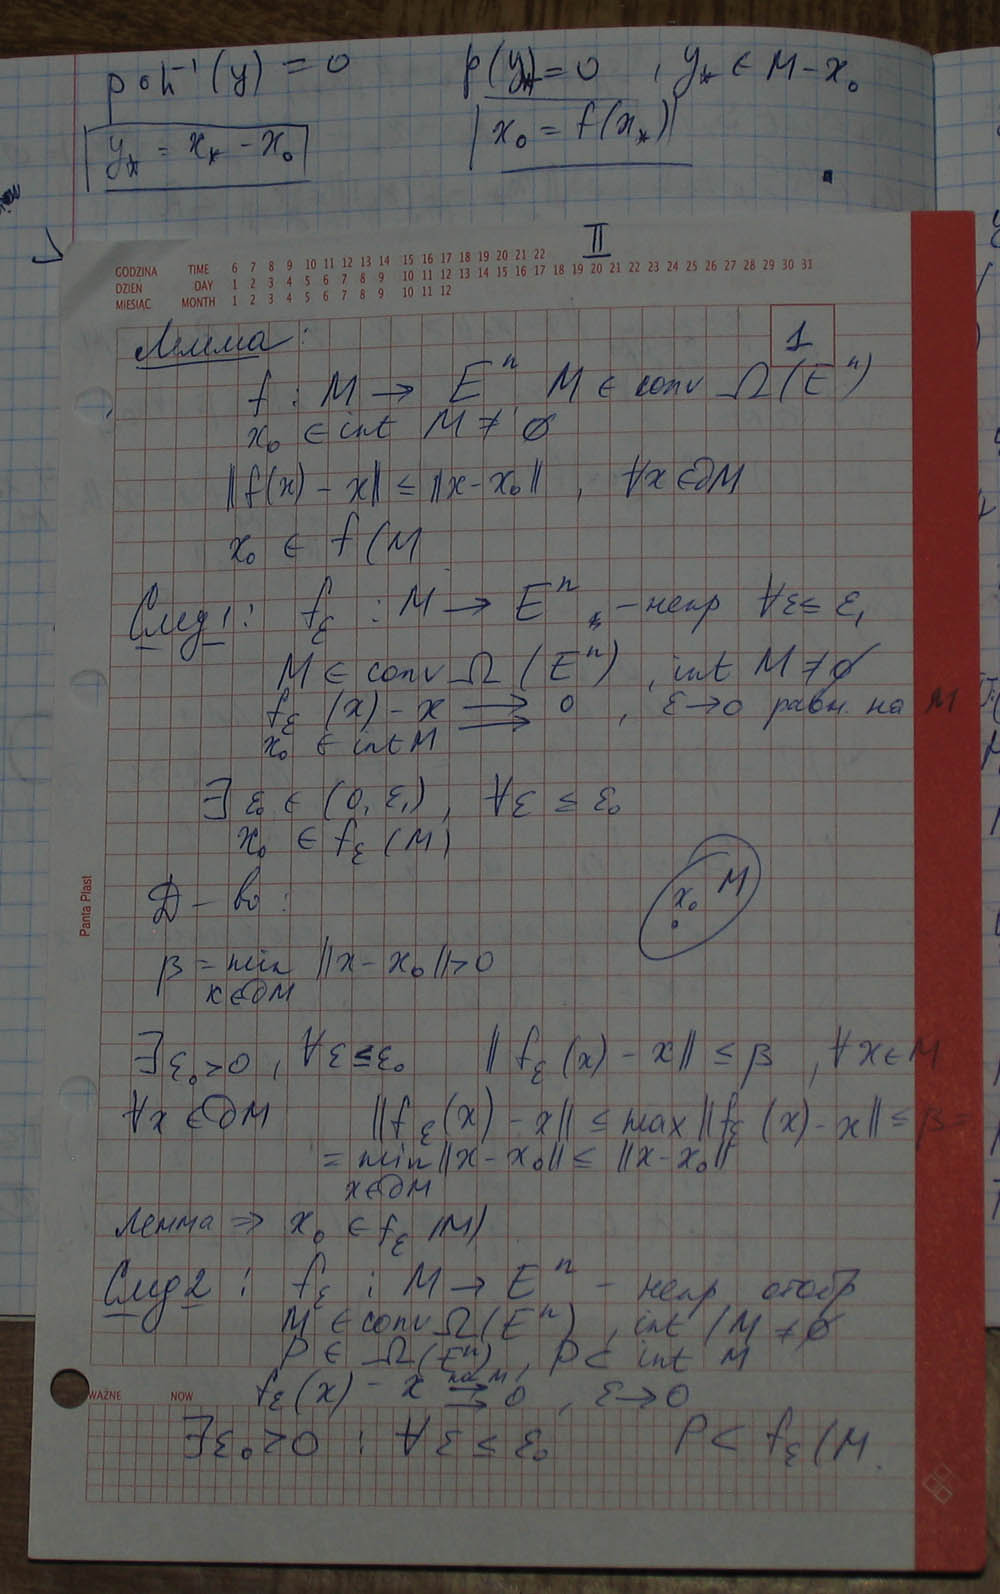 p∘h⁻¹(y) = 0 p(y*) = 0 , y* ∈ M - x₀
y* = x* - x₀ x₀ = f(x*)
II
GODZINA TIME 6 7 8 9 10 11 12 13 14 15 16 17 18 19 20 21 22
DZIEŃ DAY 1 2 3 4 5 6 7 8 9 10 11 12 13 14 15 16 17 18 19 20 21 22 23 24 25 26 27 28 29 30 31
MIESIĄC MONTH 1 2 3 4 5 6 7 8 9 10 11 12
1
Лемма:
f : M → Eⁿ M ∈ conv Ω(Eⁿ)
x₀ ∈ int M ≠ ∅
||f(x) - x|| ≤ ||x - x₀|| , ∀x ∈ ∂M
x₀ ∈ f(M
След 1: f_ε : M → Eⁿ - непр ∀ε ≤ ε₁
M ∈ conv Ω(Eⁿ) , int M ≠ ∅
f_ε(x) - x ⇉ 0 , ε → 0 равн. на M
x₀ ∈ int M
∃ ε₀ ∈ (0, ε₁) , ∀ε ≤ ε₀
x₀ ∈ f_ε(M)
x₀ M
Д-во:
β = min ||x - x₀|| > 0
x ∈ ∂M
∃ε₀ > 0, ∀ε ≤ ε₀ ||f_ε(x) - x|| ≤ β , ∀x ∈ M
∀x ∈ ∂M ||f_ε(x) - x|| ≤ max ||f_ε(x) - x|| ≤ β =
= min ||x - x₀|| ≤ ||x - x₀||
x ∈ ∂M
Лемма ⇒ x₀ ∈ f_ε(M)
След 2: f_ε : M → Eⁿ - непр отобр
M ∈ conv Ω(Eⁿ) , int M ≠ ∅
P ∈ Ω(Eⁿ), P ⊂ int M
f_ε(x) - x ⇉ на M 0 , ε → 0
∃ε₀ > 0 : ∀ε ≤ ε₀ P ⊂ f_ε(M
WAŻNE NOW
Panta Plast